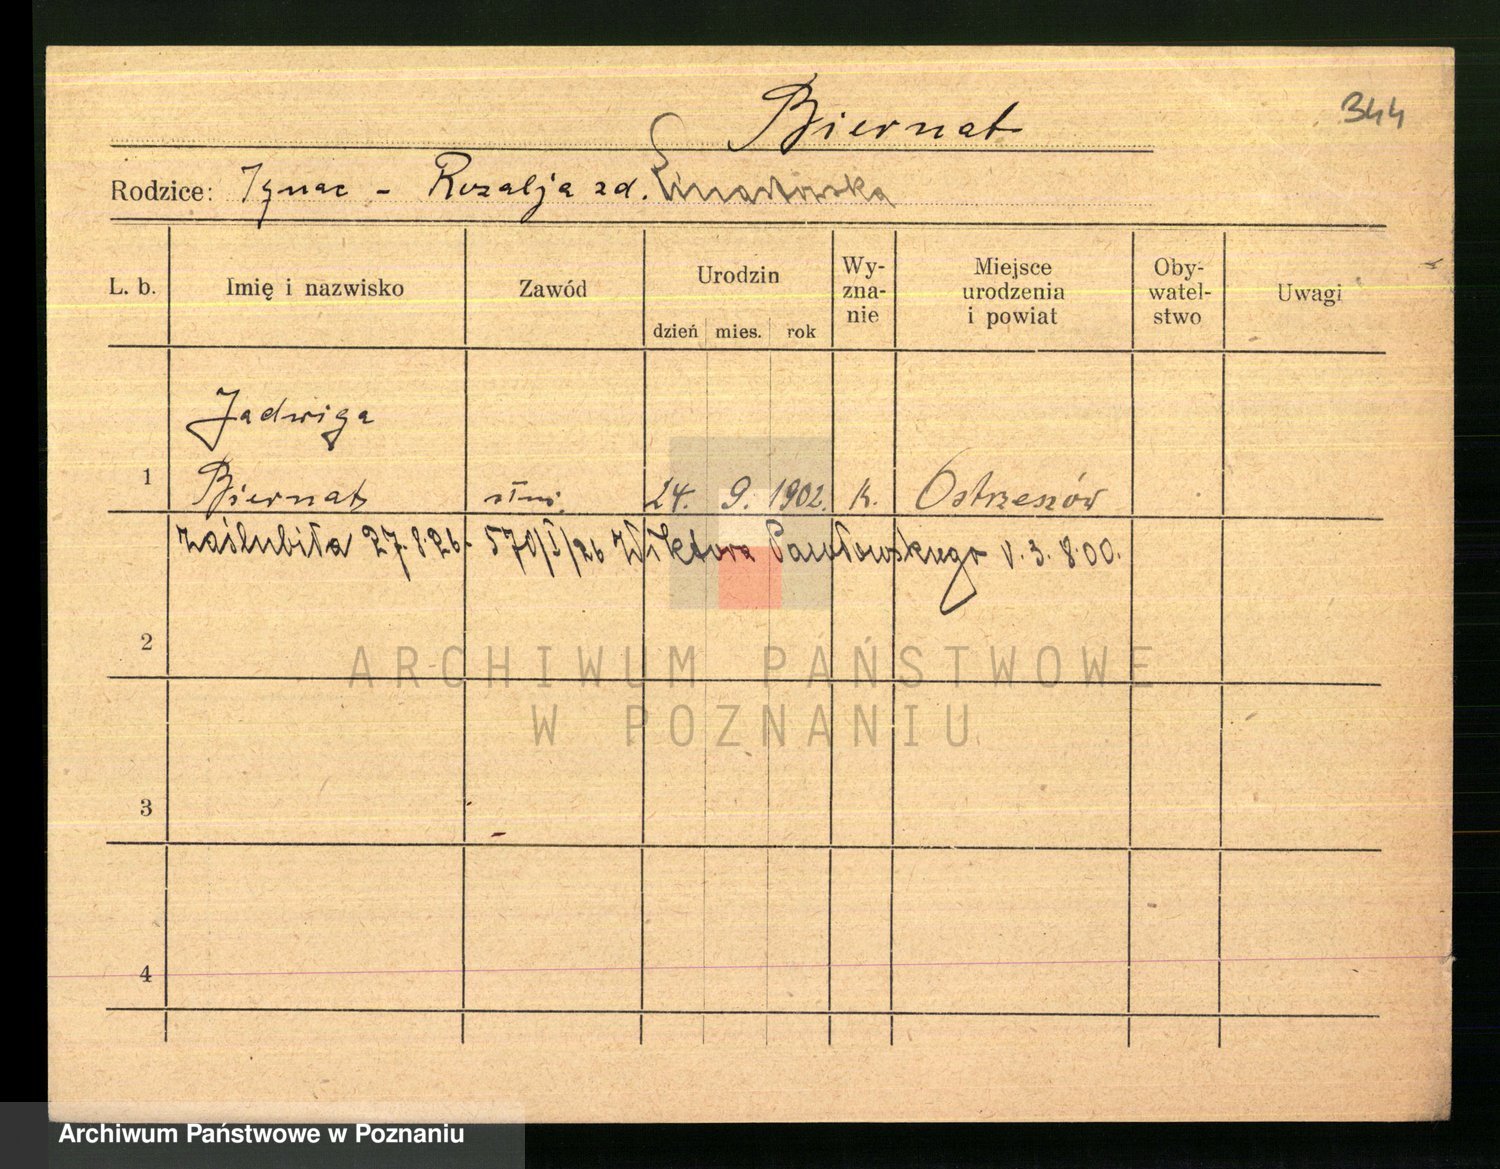 Biernat
344
Rodzice: Ignac - Rozalja zd.
L. b.
Imię i nazwisko
Zawód
Urodzin
dzień mies. rok
Wy-
zna-
nie
Miejsce
urodzenia
i powiat
Oby-
watel-
stwo
Uwagi
Jadwiga
1 Biernat 24. 9. 1902. k. Ostrzeszów
zaślubiła 27.8.26. 570/I/26 Wiktora Pawłowskiego v. 3. 8.00.
2
3
4
ARCHIWUM PAŃSTWOWE
W POZNANIU
Archiwum Państwowe w Poznaniu